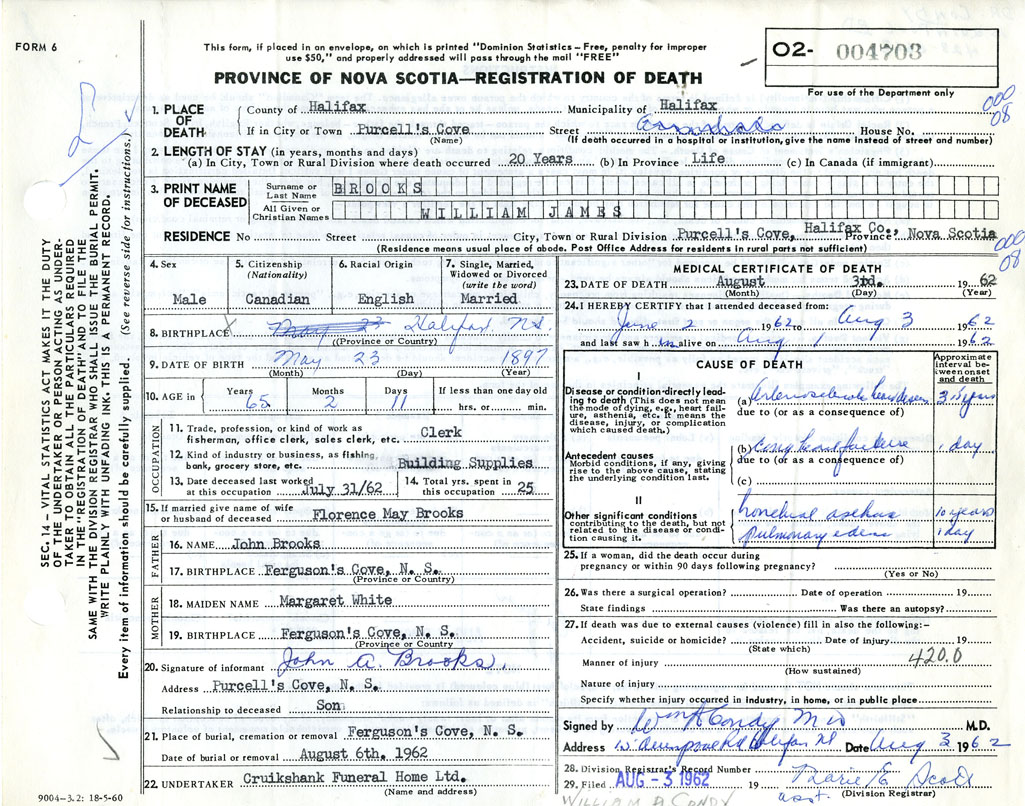 FORM 6
This form, if placed in an envelope, on which is printed "Dominion Statistics – Free, penalty for improper
use $50," and properly addressed will pass through the mail "FREE"
O2- 004703
For use of the Department only
PROVINCE OF NOVA SCOTIA—REGISTRATION OF DEATH
SEC. 14 – VITAL STATISTICS ACT MAKES IT THE DUTY
OF THE UNDERTAKER OR PERSON ACTING AS UNDER-
TAKER TO OBTAIN ALL THE PARTICULARS REQUIRED
IN THE "REGISTRATION OF DEATH" AND TO FILE THE
SAME WITH THE DIVISION REGISTRAR WHO SHALL ISSUE THE BURIAL PERMIT.
WRITE PLAINLY WITH UNFADING INK. THIS IS A PERMANENT RECORD.
Every item of information should be carefully supplied. (See reverse side for instructions.)
1. PLACE OF DEATH County of Halifax Municipality of Halifax
If in City or Town Purcell's Cove Street House No.
(Name) (If death occurred in a hospital or institution, give the name instead of street and number)
000
08
2. LENGTH OF STAY (in years, months and days)
(a) In City, Town or Rural Division where death occurred 20 Years (b) In Province Life (c) In Canada (if immigrant)
3. PRINT NAME OF DECEASED Surname or Last Name BROOKS
All Given or Christian Names WILLIAM JAMES
RESIDENCE No Street City, Town or Rural Division Purcell's Cove, Halifax Co., Province Nova Scotia
(Residence means usual place of abode. Post Office Address for residents in rural parts not sufficient)
000
08
4. Sex
Male
5. Citizenship
(Nationality)
Canadian
6. Racial Origin
English
7. Single, Married,
Widowed or Divorced
(write the word)
Married
8. BIRTHPLACE Halifax N.S.
(Province or Country)
9. DATE OF BIRTH May 23 1897
(Month) (Day) (Year)
10. AGE in Years 65 Months 2 Days 11 If less than one day old
hrs. or min.
OCCUPATION
11. Trade, profession, or kind of work as
fisherman, office clerk, sales clerk, etc. Clerk
12. Kind of industry or business, as fishing,
bank, grocery store, etc. Building Supplies
13. Date deceased last worked
at this occupation July 31/62
14. Total yrs. spent in
this occupation 25
15. If married give name of wife
or husband of deceased Florence May Brooks
FATHER
16. NAME John Brooks
17. BIRTHPLACE Ferguson's Cove, N. S.
(Province or Country)
MOTHER
18. MAIDEN NAME Margaret White
19. BIRTHPLACE Ferguson's Cove, N. S.
(Province or Country)
20. Signature of informant John A. Brooks.
Address Purcell's Cove, N. S.
Relationship to deceased Son
21. Place of burial, cremation or removal Ferguson's Cove, N. S.
Date of burial or removal August 6th. 1962
22. UNDERTAKER Cruikshank Funeral Home Ltd.
(Name and address)
9004–3.2: 18-5-60
MEDICAL CERTIFICATE OF DEATH
23. DATE OF DEATH August 3rd. 1962
(Month) (Day) (Year)
24. I HEREBY CERTIFY that I attended deceased from:
June 2 1962 to Aug 3 1962
and last saw h im alive on Aug 1 1962
CAUSE OF DEATH
Approximate
interval be-
tween onset
and death
I
Disease or condition directly lead-
ing to death (This does not mean
the mode of dying, e.g., heart fail-
ure, asthenia, etc. It means the
disease, injury, or complication
which caused death.)
(a) heart disease
due to (or as a consequence of)
Antecedent causes
Morbid conditions, if any, giving
rise to the above cause, stating
the underlying condition last.
(b) cong heart failure 1 day
due to (or as a consequence of)
(c)
II
Other significant conditions
contributing to the death, but not
related to the disease or condi-
tion causing it.
10 years
pulmonary edema 1 day
25. If a woman, did the death occur during
pregnancy or within 90 days following pregnancy?
(Yes or No)
26. Was there a surgical operation? Date of operation 19
State findings Was there an autopsy?
27. If death was due to external causes (violence) fill in also the following:–
Accident, suicide or homicide? Date of injury 19
(State which)
420.0
Manner of injury
(How sustained)
Nature of injury
Specify whether injury occurred in industry, in home, or in public place
Signed by Wm A Condy M D M.D.
Address Halifax NS Date Aug 3 1962
28. Division Registrar's Record Number
29. Filed AUG -3 1962 19 Marie E. Scott
asst. (Division Registrar)
WILLIAM A CONDY